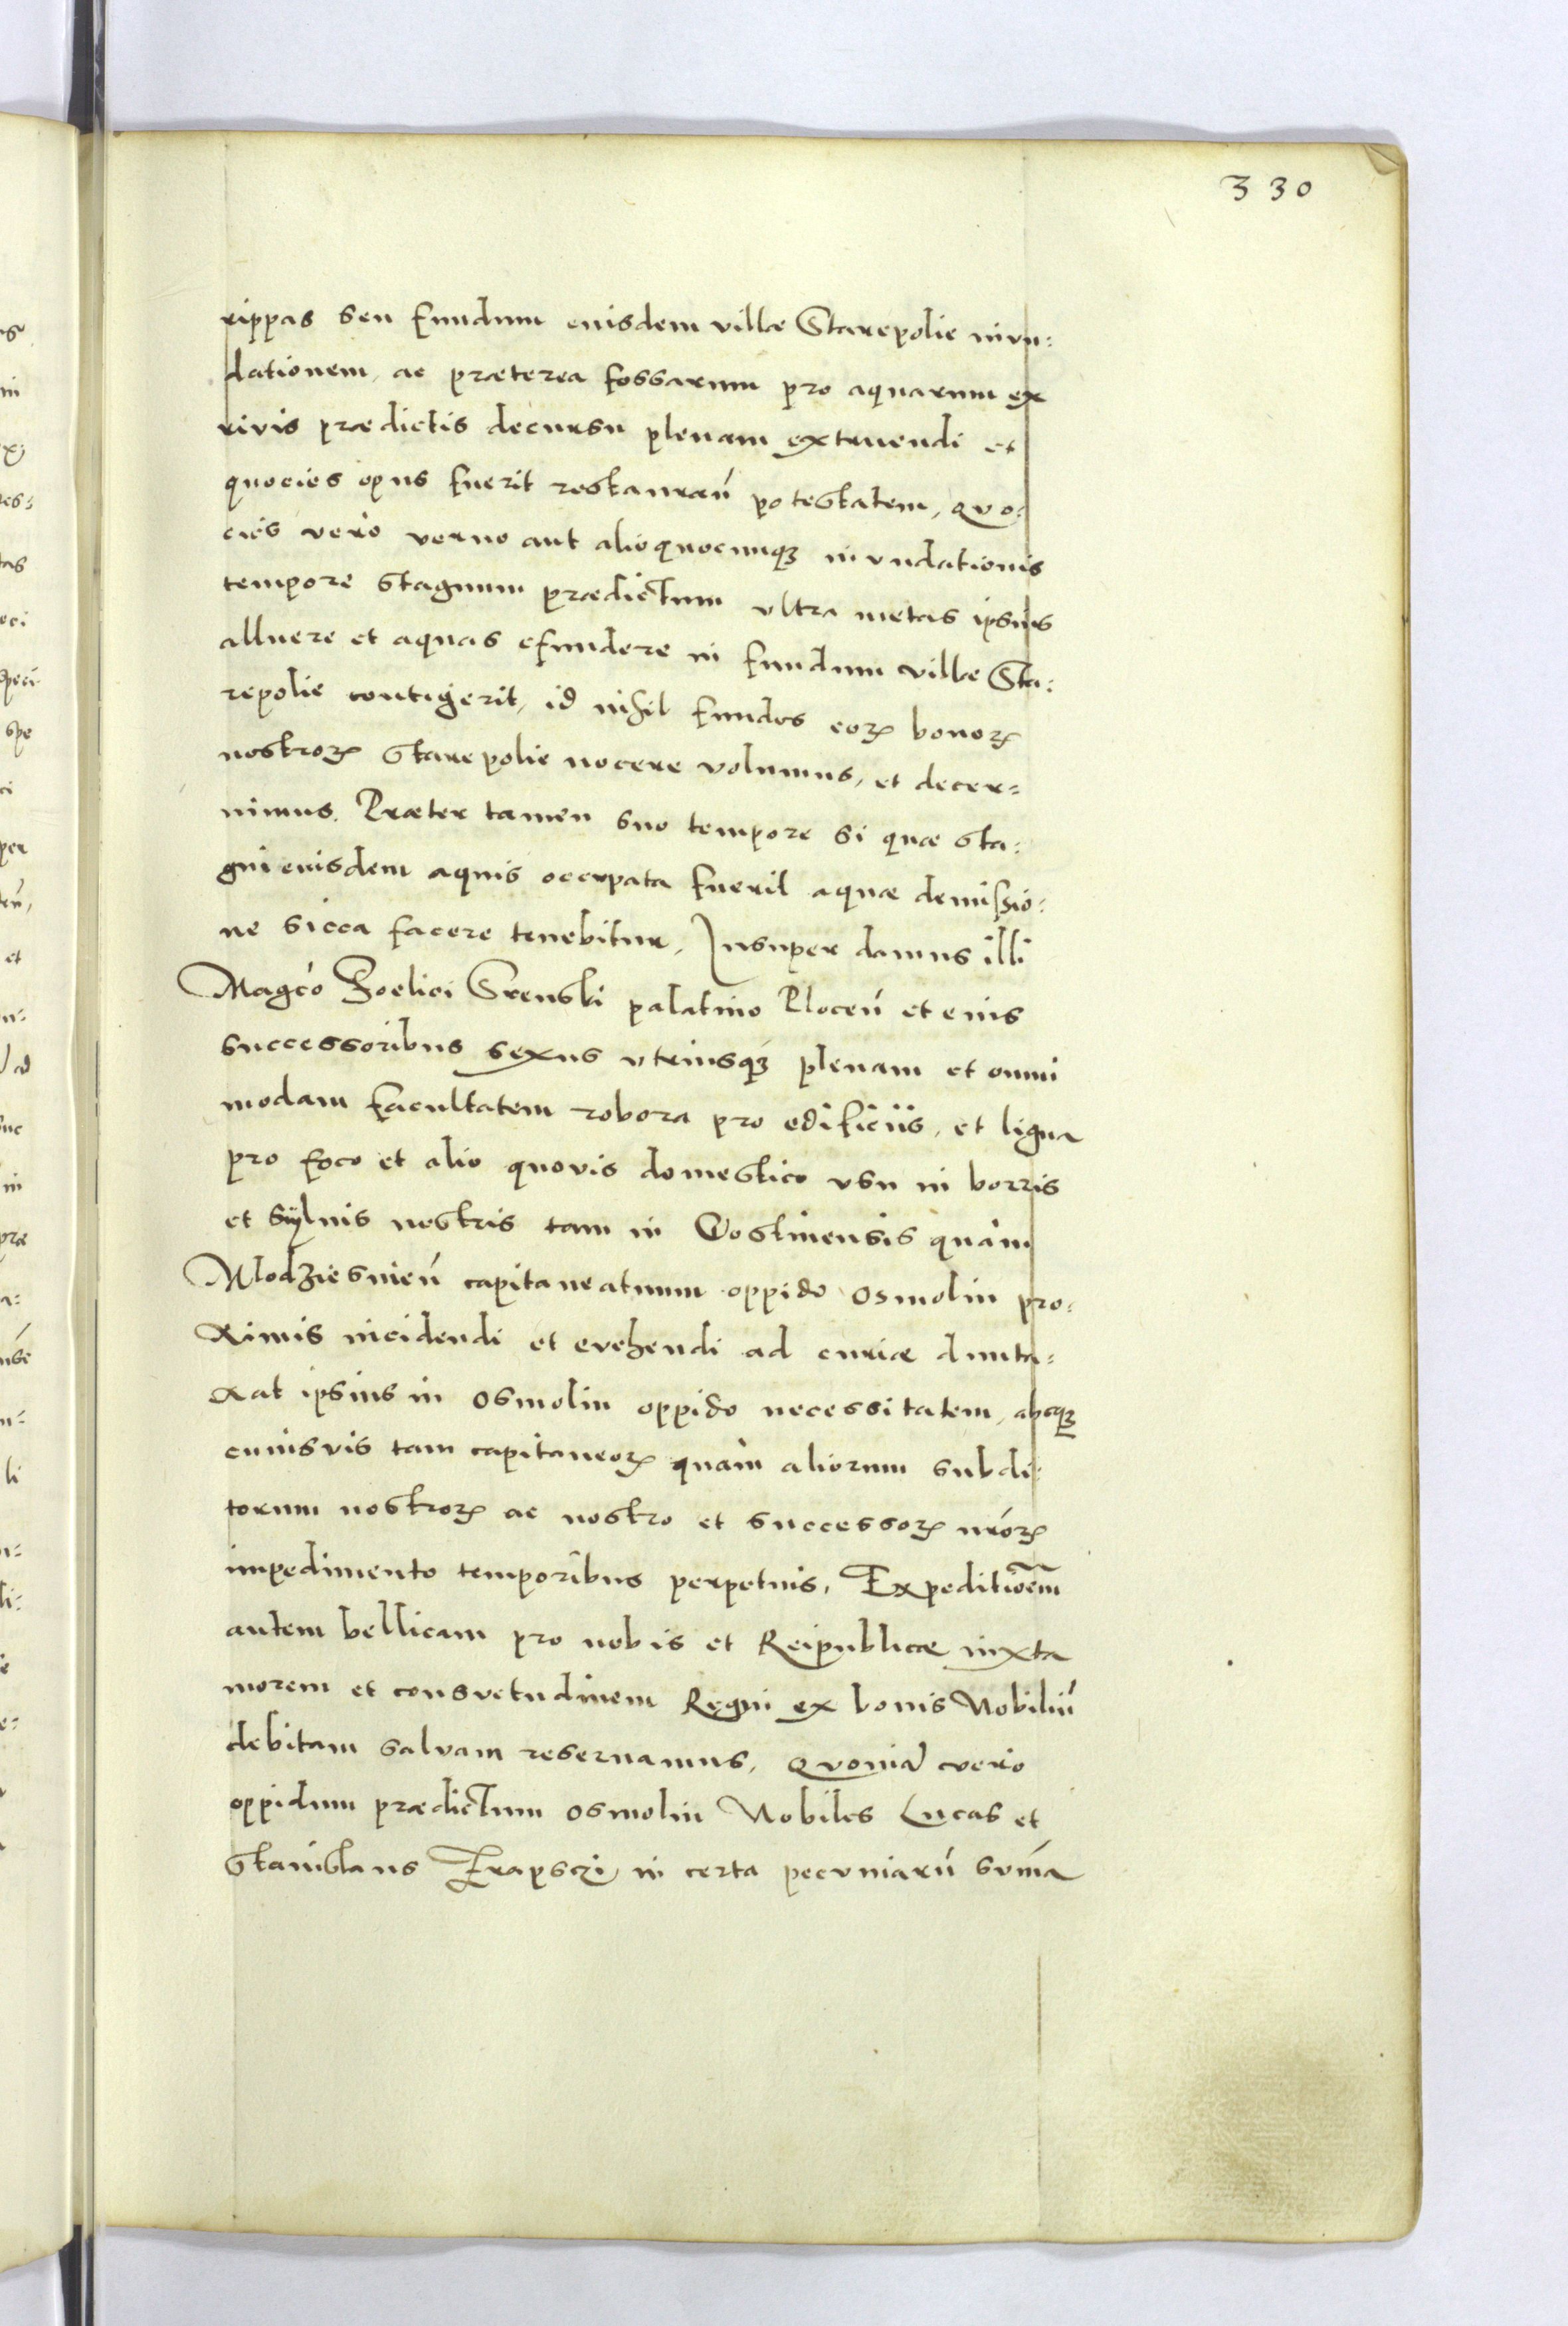 330
rippas seu fundum euisdem villæ Starepolie inun=
dationem, ac præterea fossarum pro aquarum ex
rivis prædictis decursu plenam extruendi et
quocies opus fuerit restauran̄ potestatem, quo=
cies vero verno aut alio quocunqꝫ inundationis
tempore stagnum prædictum vltra metas ipsius
alluere et aquas efundere in fundum villæ Sta=
repolie contigerit, id nihil fundos eoꝝ bonoꝝ
nostroꝝ Starepolie nocere volumus, et decer=
nimus. Præter tamen suo tempore si quæ sta=
gni euisdem aquis occupata fueril aquæ demissio=
ne sicca facere tenebitur, Insuper damus illi
Magco Foelici Srenski palatino Plocen̄ et eius
successoribus sexus vtriusqꝫ plenam et omni
modam facultatem robora pro edificiis, et ligna
pro foco et alio quovis domestico vsu in borris
et sÿluis nostris tam in Gostinensis quam
Mlodziesnien̄ capitaneatuum oppido Osmolin pro=
ximis incidendi et evehendi ad curiæ dunta=
xat ipsius in Osmolin oppido necessitatem, absqꝫ
cuiusvis tam capitaneoꝝ quam aliorum subdi=
torum nostroꝝ ac nostro et successoꝝ nr̄oꝝ
impedimento temporibus perpetuis, Expeditioēm
autem bellicam pro nobis et Reipublicæ iuxta
morem et consvetudinem Regni ex bonis Nobiliū
debitam salvam reseruamus, Quoniā vero
oppidum prædictum Osmolin Nobiles Lucas et
Stanislaus Trapsczi in certa pecuniarū sum̄a